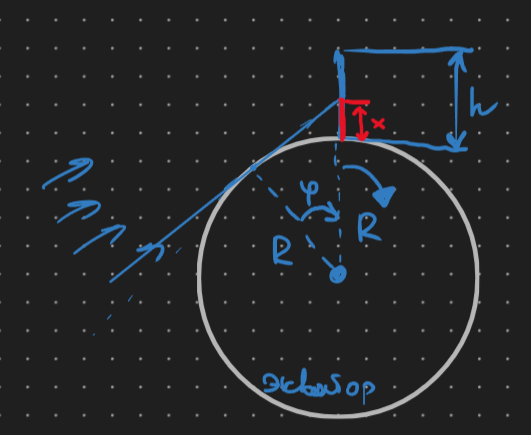 h
x
φ
R
R
экватор